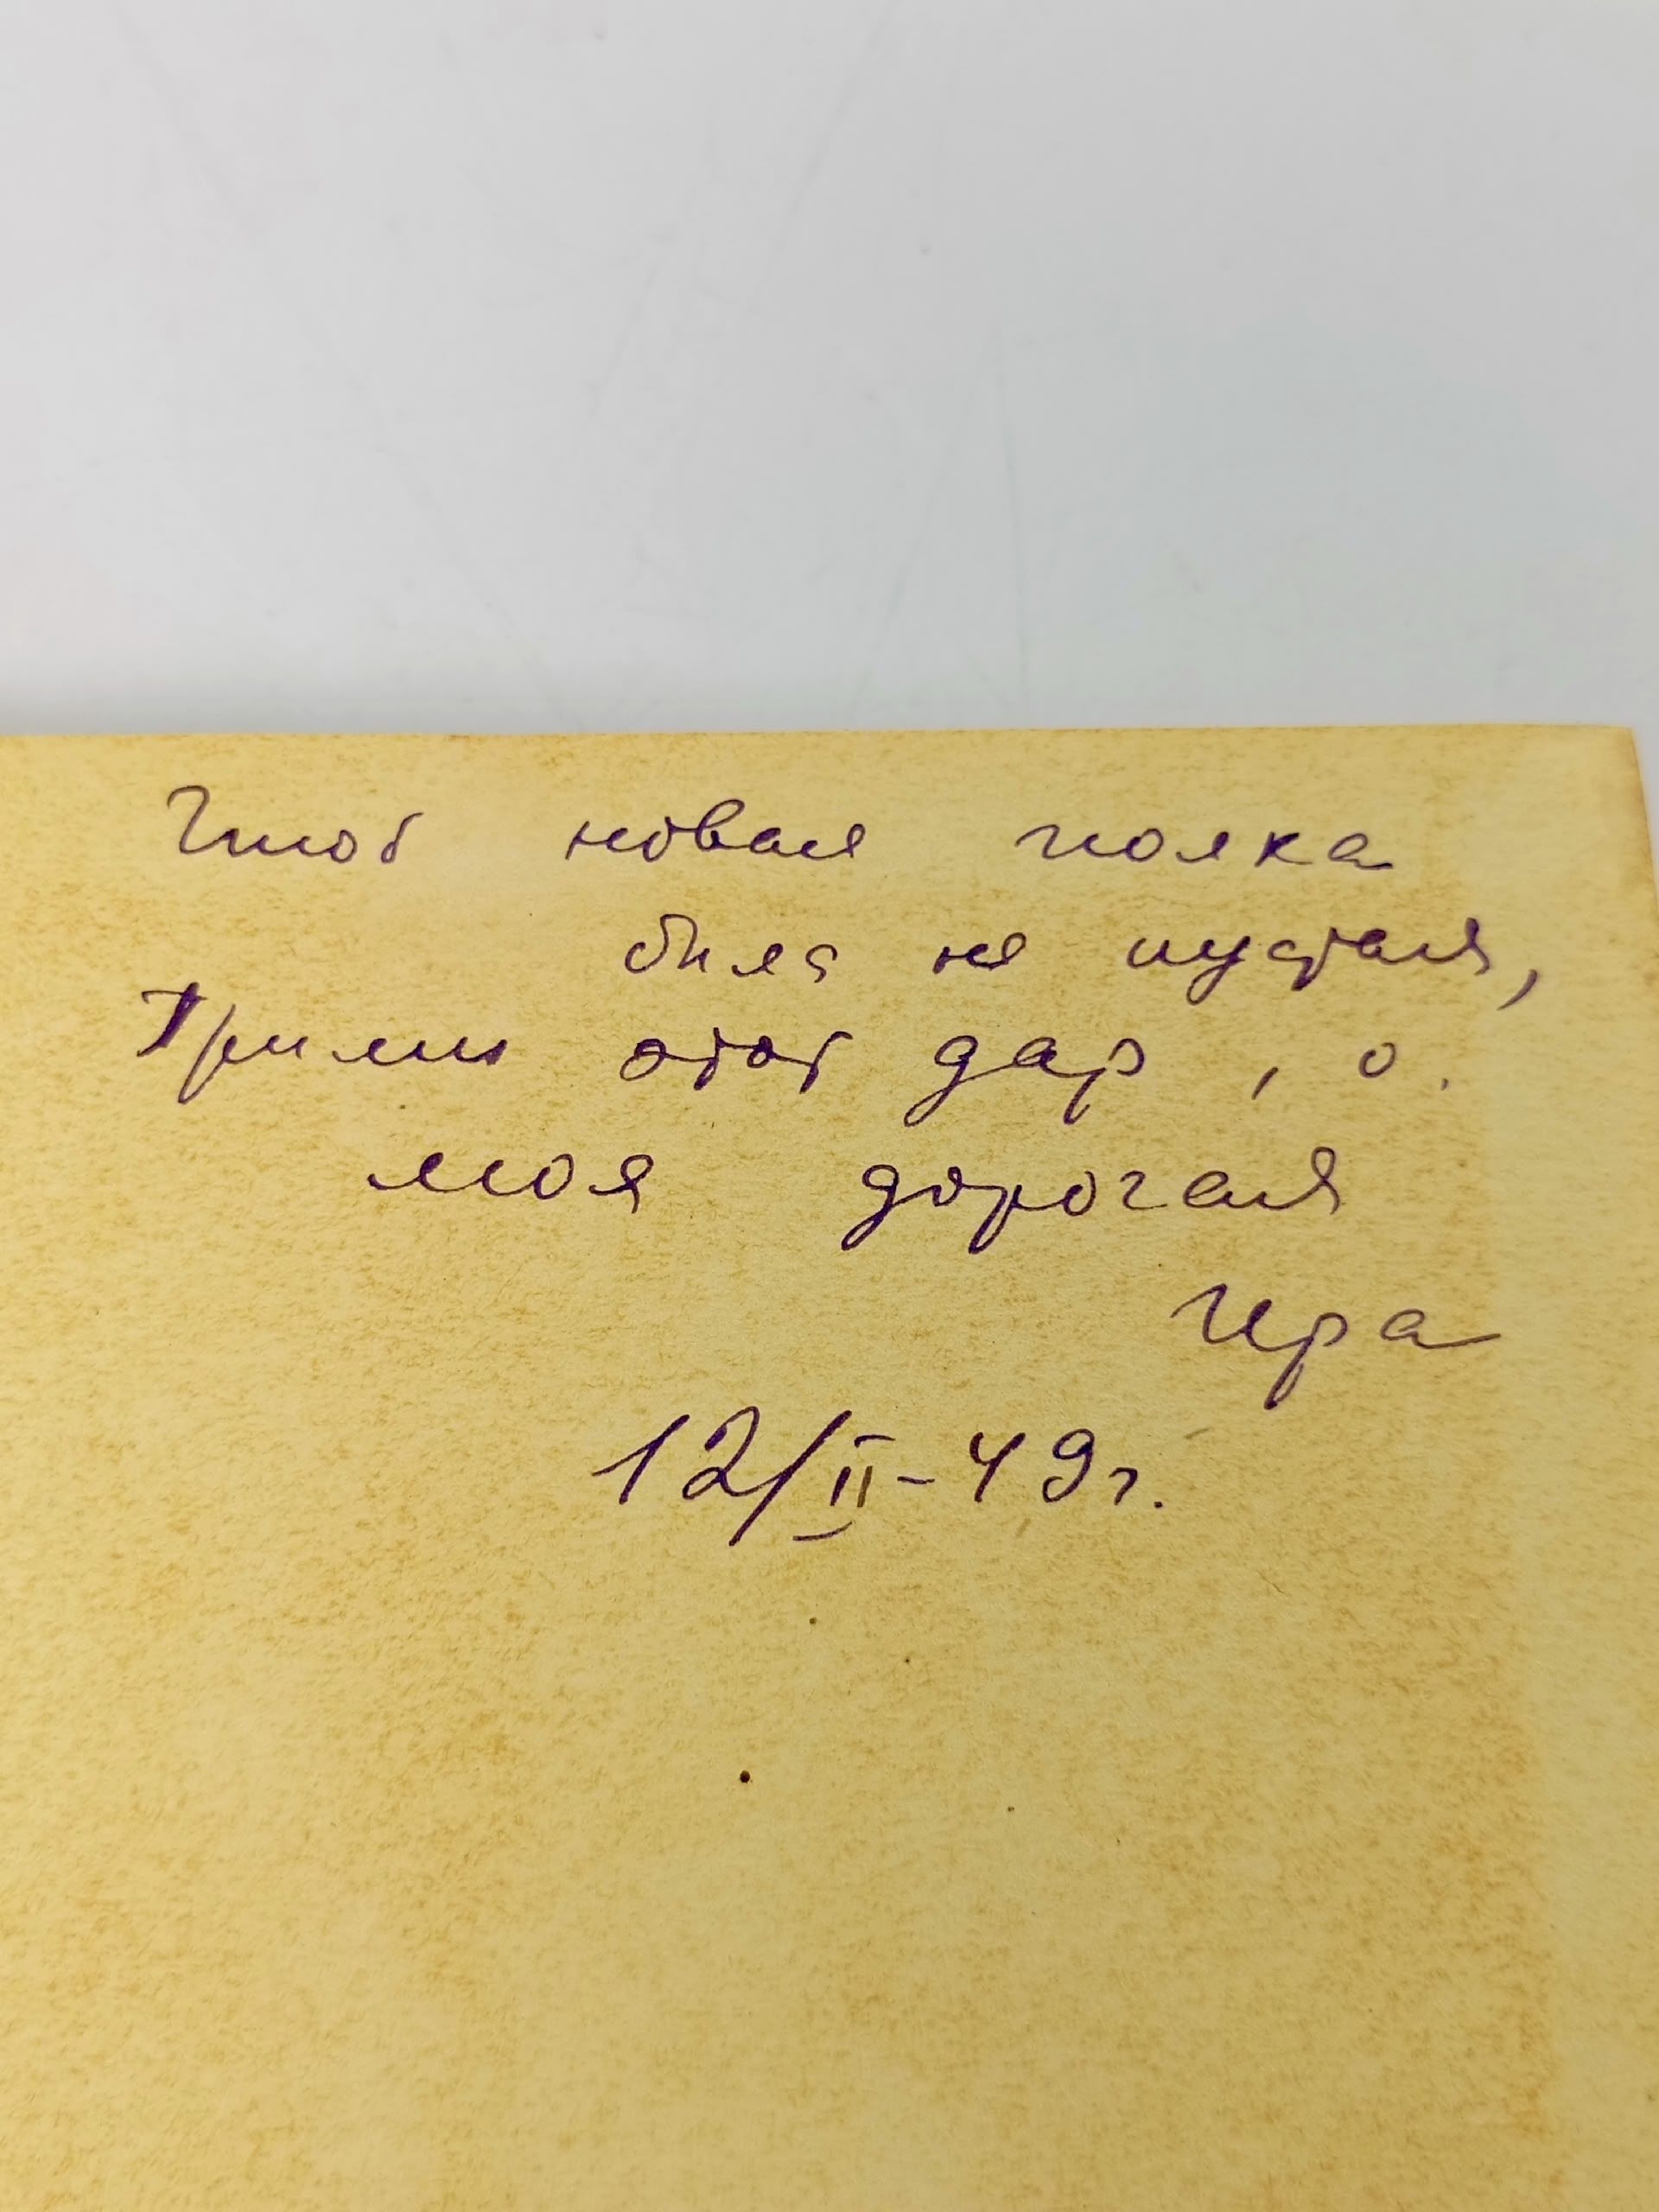 Чтоб новая полка
была не пустая,
Прими этот дар, о.
моя дорогая
Ира
12/II-49г.